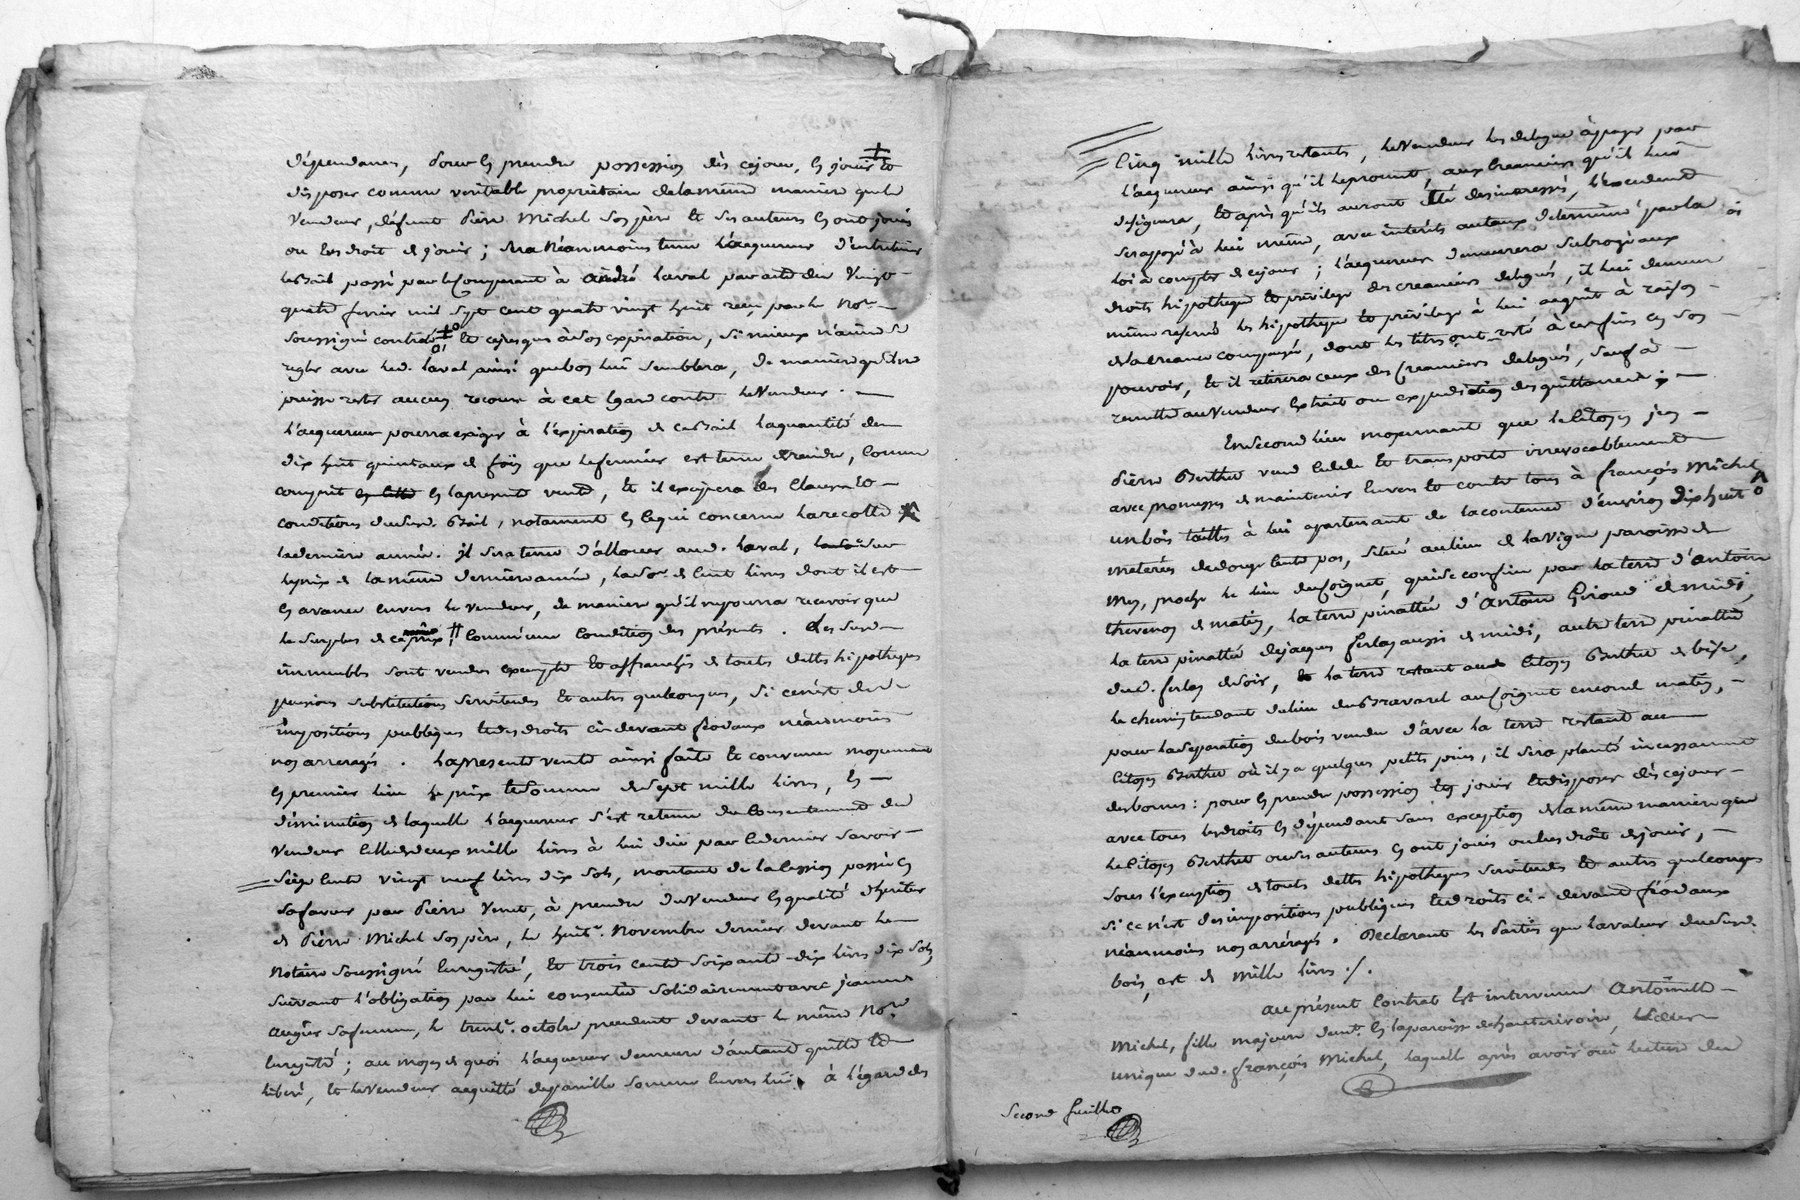 dépendances, pour en prendre possession dès cejour, en jouir et
disposer comme veritable proprietaire delamême maniere quele
Vendeur, défunt Pière Michel son père et ses auteurs en ont jouis
ou eu droit de jouir ; sera néanmoins tenu l'acquereur d'entretenir
lebail passé par le Comparant à andré laval par acte du Vingt
quatre fevrier mil sept cent quatre vingt huit reçu par le Nore
soussigné controlé et cejusques àson expiration, si mieux n'aime se
regler avec led. laval ainsi quebon lui semblera, de maniere qu'il ne
puisse rester aucun recours à cet Egard contre leVendeur.
l'acquereur pourra exiger à l'expiration de cebail laquantité de
dix huit quintaux de foin que lefermier est tenu derendre, comme
compris en lapresente vente, et il excipera des Clauses et
conditions dudit Bail, notament en cequi concerne larecolte de
laderniere année. Il sera tenu d'allouer aud. laval, sur
leprix de lamême derniere année, la so.e de Cent livres dont il est
en avance envers le vendeur, de maniere qu'il ne pourra recevoir que
le surplus de ce même prix, comme une Condition des présentes. Les susd.
immeubles sont vendus exempts et affranchis de toutes dettes hipotheques
pensions substitutions servitudes et autres quelconques, si cen'est des
impositions publiques et des droits ci devant féodaux néanmoins
non arreragés. Lapresente vente ainsi faite et convenue moyenant
en premier lieu le prix et somme de sept mille livres, en
diminution de laquelle l'acquereur s'est retenu du Consentement du
Vendeur celle de deux mille livres à lui due par ce dernier savoir
Seize cents vingt neuf livres dix sols, montant de la Cession passée en
safaveur par Pierre Venet, à prendre du Vendeur en qualité d'heritier
de Pierre Michel son père, le huit.e Novembre dernier devant le
Notaire soussigné Enregistré, et trois cents soixante-dix livres dix sols,
suivant l'obligation par lui consentie solidairement avec jeanne
augier safemme, le trent.e octobre precedent devant le même No.re
Enregistré ; au moyen de quoi l'acquereur demeure d'autant quitte et
liberé, et le Vendeur acquitté de pareille somme Envers lui. à l'égard des
Cinq mille livres restants, le Vendeur les delegue à payer par
l'acquereur ainsi qu'il le promet, aux Creanciers qu'il lui
designera, et après qu'ils auront été desinteressés, l'excedent
sera payé à lui même, avec interêts autaux determiné par la
loi à compter de cejour ; l'acquereur demeurera subrogé aux
droits hipotheque et privilege des creanciers delegués, il lui demeure
même reservé les hipotheque et privilege à lui acquis à raison
de la creance compensée, dont les titres ont resté à ces fins en son
pouvoir, et il retirera ceux des Creanciers delegués, sauf à
remettre au Vendeur Extrait ou expedition des quittances ;
En second lieu moyennant que le Citoyen jean
Pierre Berthet vend cede et transporte irrevocablement
avec promesses de maintenir Envers et contre tous à françois Michel
un bois taillis à lui apartenant de la contenue d'environ dix huit
meterées de douze cents pas, situé au lieu de la Vigne paroisse de
Mey, proche le lieu du Coignet, qui se confine par la terre d'antoine
thevenon de matin, la terre pinattée d'Antoine Giroud de midi,
la terre pinattée de jacques ferlay aussi de midi, autre terre pinattée
dud. ferlay de soir, et la terre restant aud. Citoyen Berthet de bise,
le chemin tendant du lieu du Bravarel au Coignet encore de matin,
pour la separation du bois vendu d'avec la terre restant au
Citoyen Berthet où il y a quelques petits pins, il sera planté incessamment
des bornes : pour en prendre possession en jouir et disposer dès cejour
avec tous les droits en dépendant sans exception de la même maniere que
le Citoyen Berthet ou ses auteurs en ont jouis ou eu droit de jouir,
sous l'exemption de toutes dettes hipotheques servitudes et autres quelconques
si ce n'est des impositions publiques et droits ci-devant féodaux
néanmoins non arréragés. Declarant les parties que la valeur du susd.
bois est de mille livres./.
au présent Contrat Est intervenue Antoinette
Michel, fille majeure demt. en laparoisse de hauterivoire, sœur
unique dud. françois Michel, laquelle après avoir oui lecture du
Second feuillet